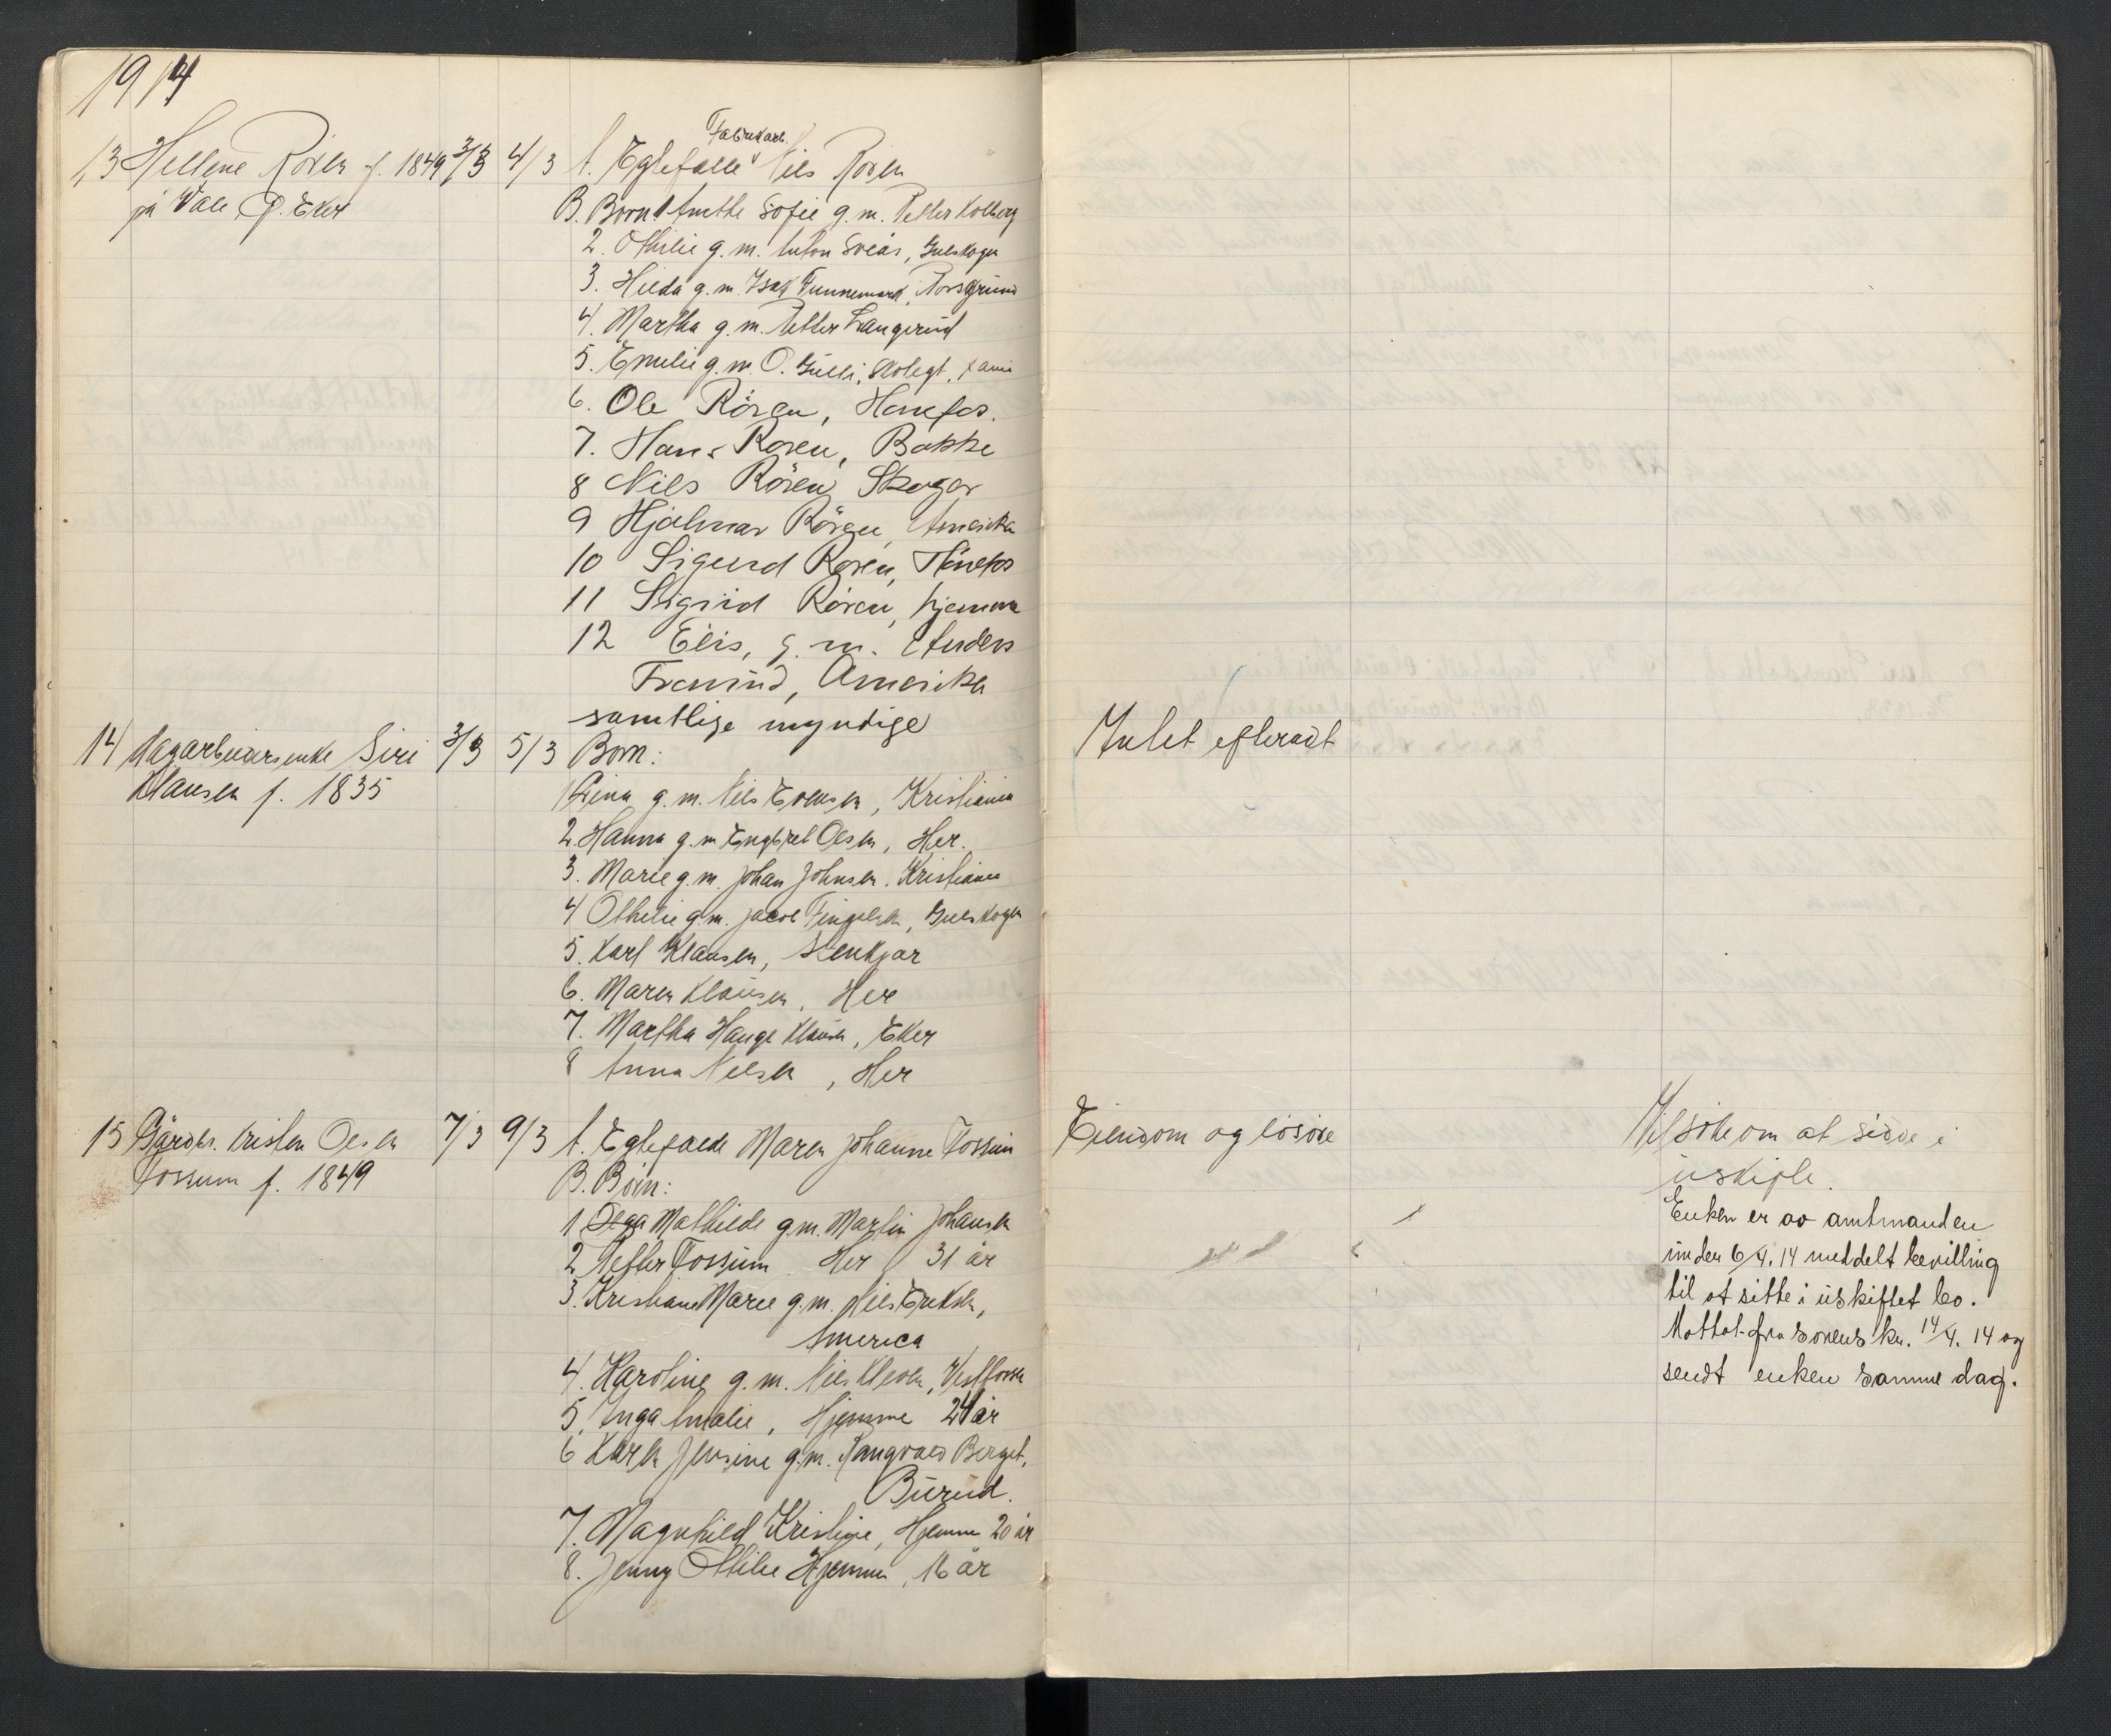 1914
13 Hellene Rören f. 1849 3/3 4/3 A. Egtefælle Fabrikarb. Nils Rören
på Vale, Ø. Eker
B. Born: 1 Anethe Sofie g.m. Petter Kolberg
2. Othilie g.m. Anton Sveås, Gulskogen
3. Hilda g.m. Isak Tunnemark, Porsgrund
4. Martha g.m. Petter Langerud
5. Emilie g.m. O. Gulli, Skolegt.
6. Ole Rören, Hønefos.
7. Hans Roren, Bakke
8 Nils Rören, Skoger
9 Hjalmar Rören, Amerika
10 Sigurd Roren, Hönefos
11 Sigrid Rören, hjemme
12 Elis, g.m. Anders
Amerika
samtlige myndige
14 Dagarbeiderenke Siri 3/3 5/3 Born:
Klausen f. 1835
Intet efterladt
1 Lina g.m. Nils Evensen, Kristiania
2. Hanna g.m. Engbret Olsen, Her.
3. Marie g.m. Johan Johnsen. Kristiania
4 Othilie g.m. Jacob Fingalsen, Gulskogen
5. Karl Klausen, Stenkjær
6. Maren Klausen, Her
7. Martha Hauge Klausen, Eker
8 Anna Nilsen, Her
15 Gårdbr. Kristen Olsen 7/3 9/3 A. Egtefælde Maren Johanne Fossum
Fossum f. 1849
B. Börn:
1 Olga Mathilde g.m. Martin Johansen
2 Petter Fossum Her 31 år
3. Kristiane Marie g.m. Nils Eriksen,
America
4. Karoline g.m. Nils Kleven, Vestfossen
5. Inga Amalie, Hjemme 24 år
6 Karen Jensine g.m. Rangvald Berget,
Burud.
7. Magnhild Kristine, Hjemme 20 år
8. Jenny Othilie Hjemme, 16 år
Eiendom og lösöre
Vil söke om at sidde i
uskifte.
Enken er av amtmanden
under 6/4.14 meddelt bevilling
til at sitte i uskiftet bo.
Mottat fra sorenskr. 14/4.14 og
sendt enken samme dag.